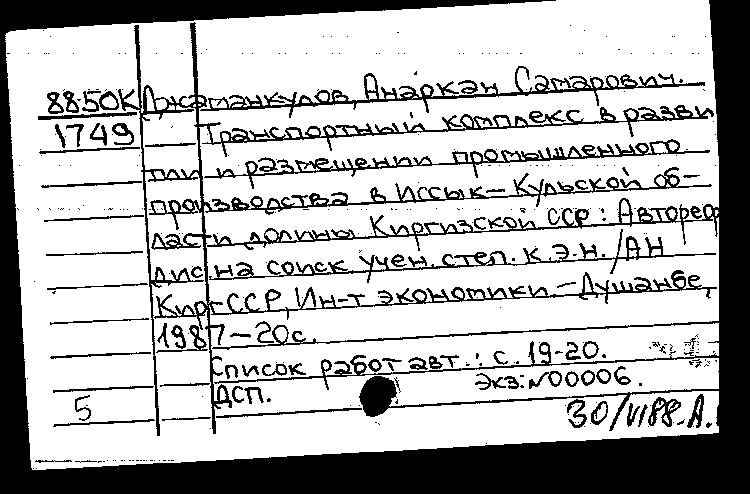 88-50К Джаманкулов, Анаркан Самарович.
1749 Транспортный комплекс в разви
тии и размещении промышленного
производства в Иссык-Кульской об-
ласти долины Киргизской ССР: Автореф
дис. на соиск. учен. степ. к.э.н. /АН
Кирг ССР, Ин-т экономики.-Душанбе,
1987-20с.
Список работ авт.: с. 19-20.
ДСП. Экз: N00006.
5 30/VI88-А.